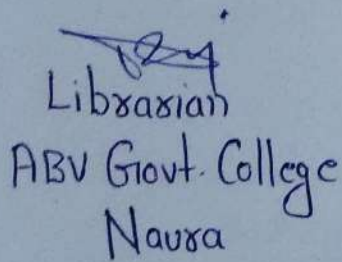 Librarian
ABV Govt. College
Naura